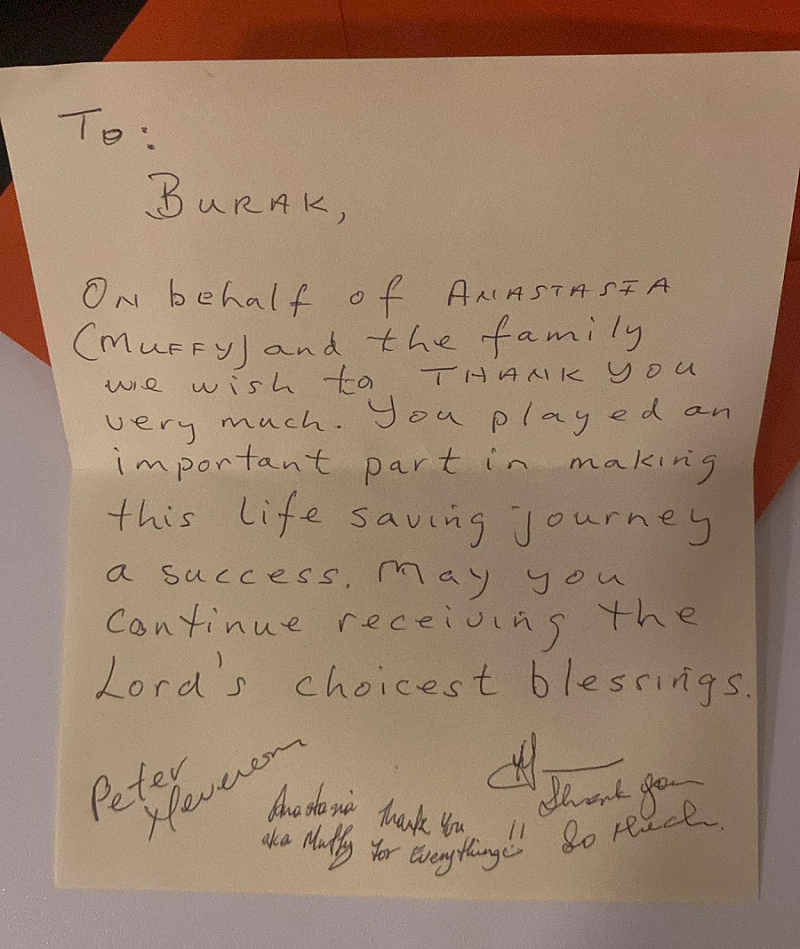 To:
BURAK,
ON behalf of ANASTASIA
(MUFFY) and the family
we wish to THANK YOU
very much. You played an
important part in making
this life saving journey
a success. May you
continue receiving the
Lord's choicest blessings.
Peter
Anastasia Thank You
aka Muffy For Everything!!
Thank you
So Much.